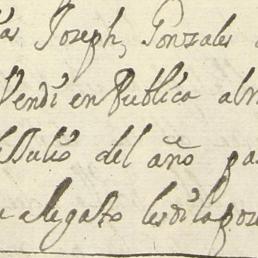 Joseph, Gonzales
Vendi en Publica alm
Julio del año pa
alegato